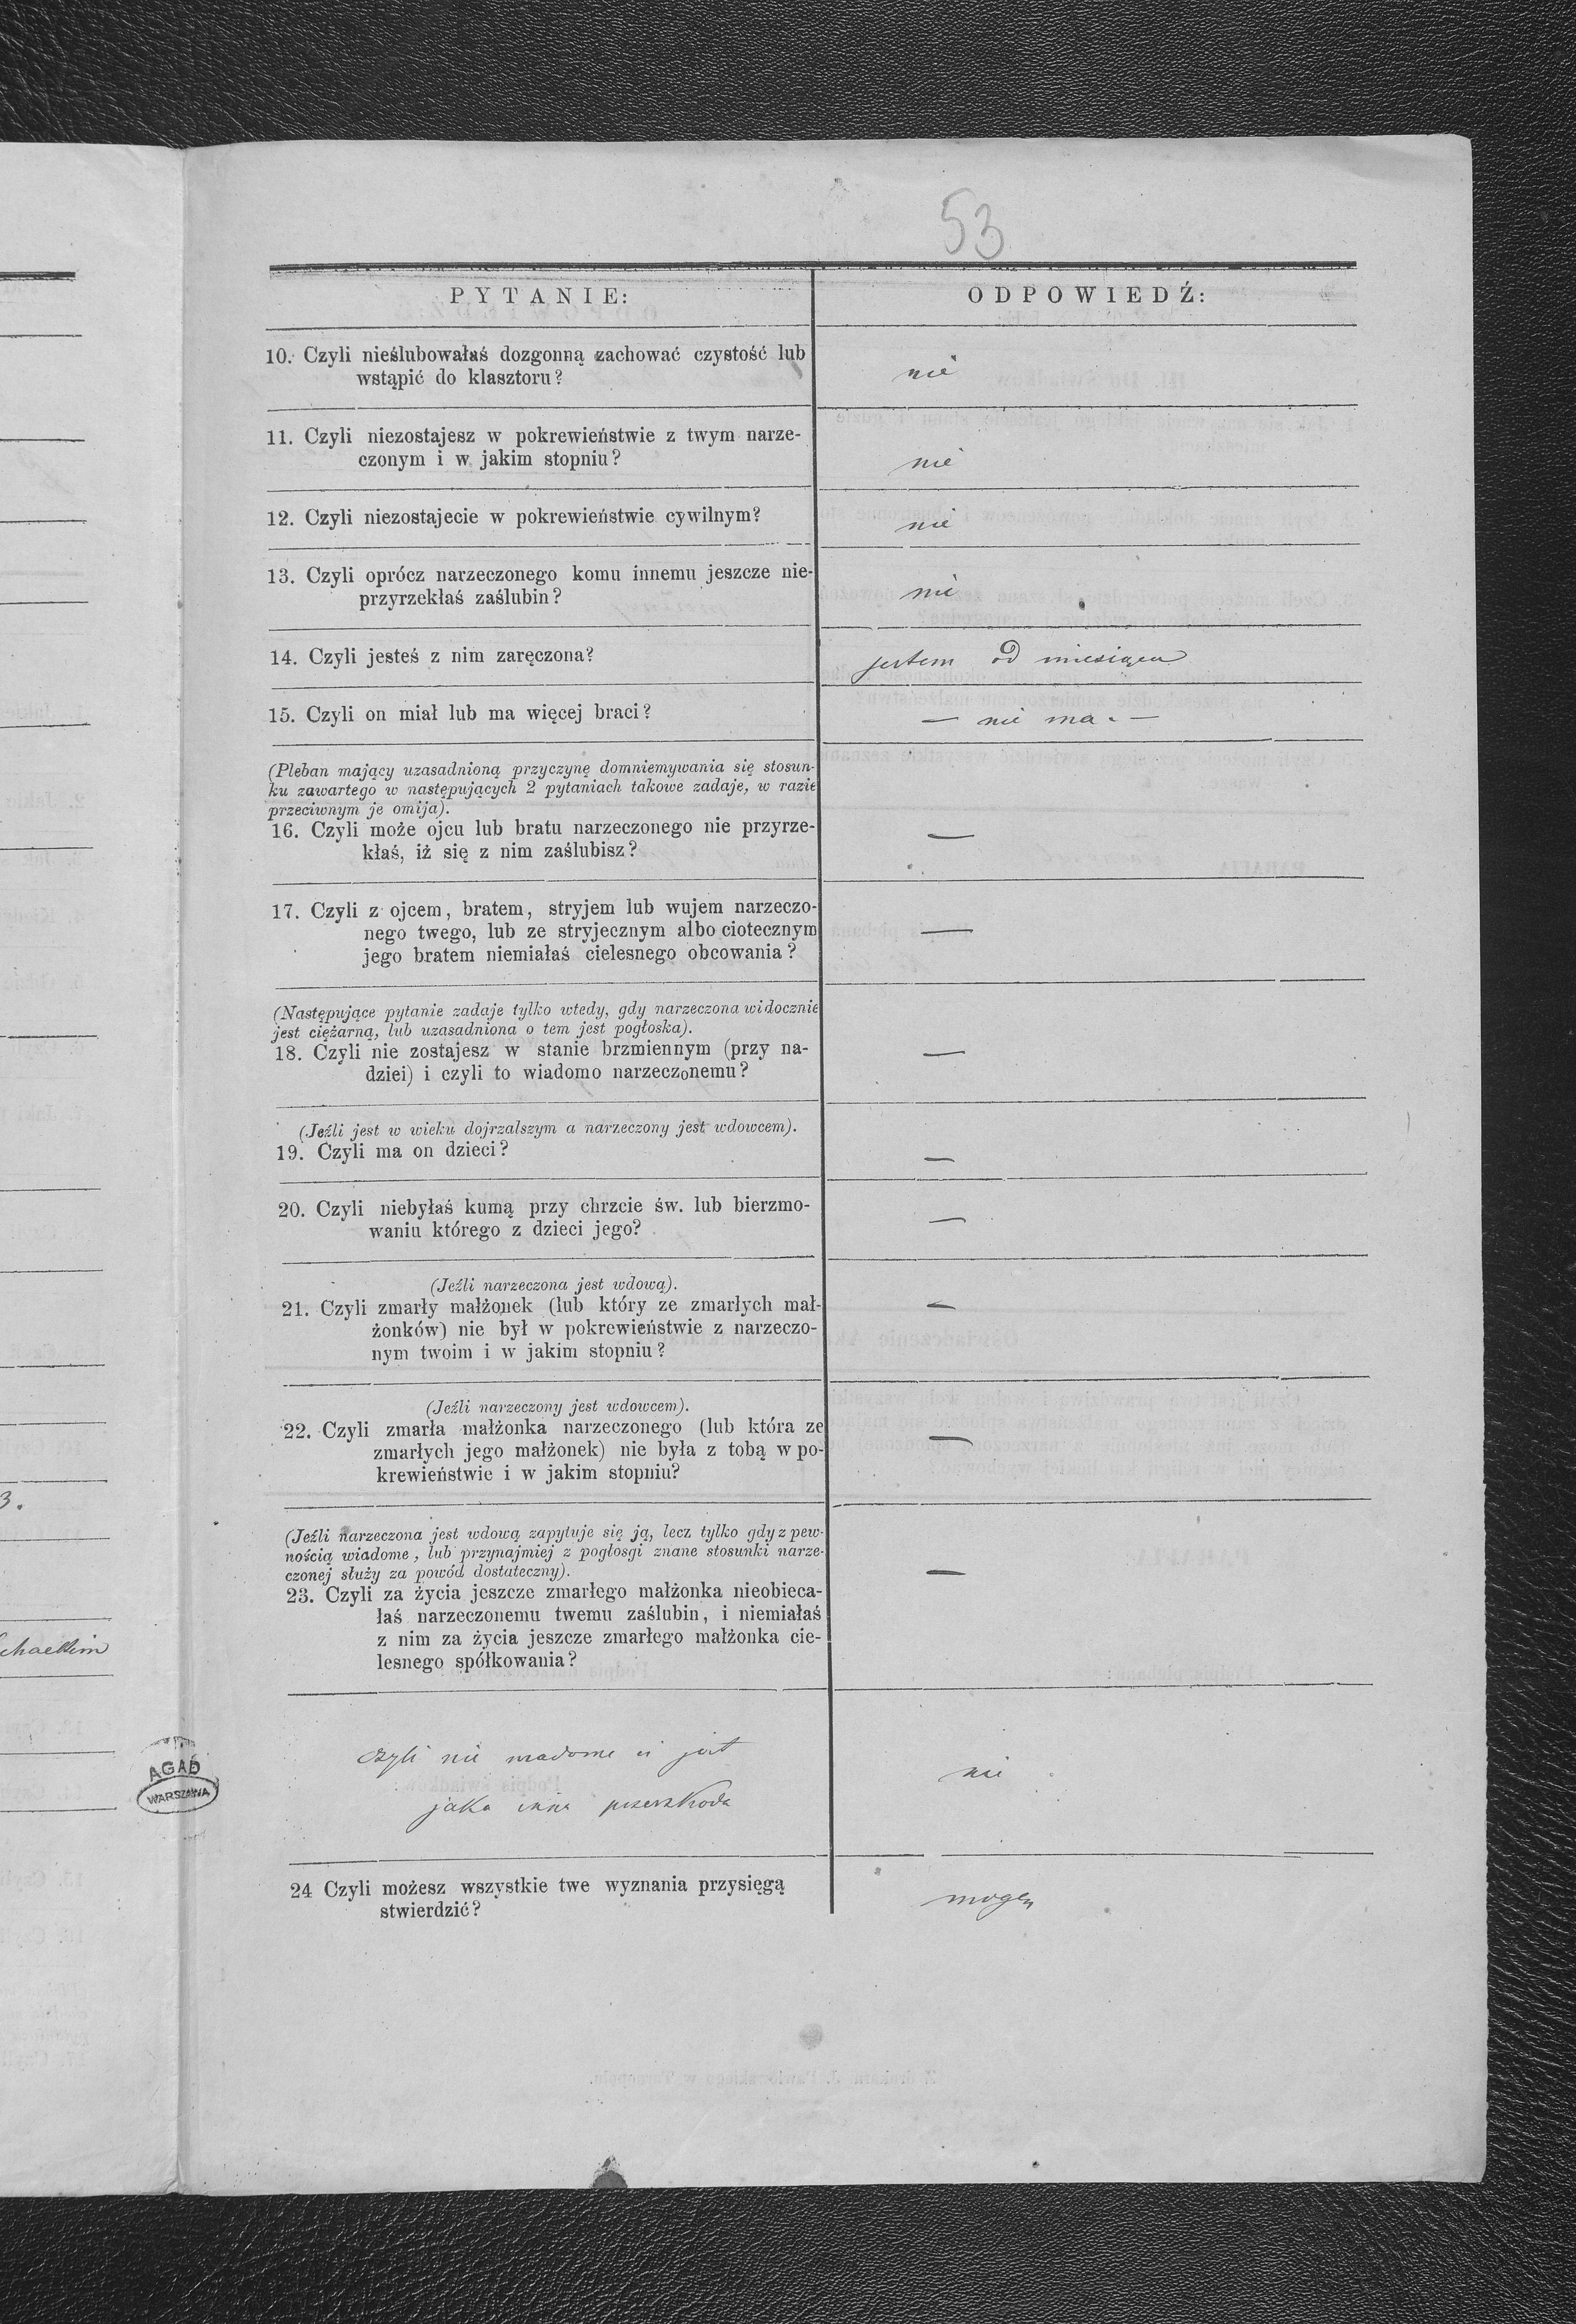 53
PYTANIE:
ODPOWIEDŹ:
10. Czyli nieślubowałaś dozgonną zachować czystość lub
wstąpić do klasztoru?
nie
11. Czyli niezostajesz w pokrewieństwie z twym narze-
czonym i w jakim stopniu?
nie
12. Czyli niezostajecie w pokrewieństwie cywilnym?
nie
13. Czyli oprócz narzeczonego komu innemu jeszcze nie-
przyrzekłaś zaślubin?
nie
14. Czyli jesteś z nim zaręczona?
jestem od miesiąca
15. Czyli on miał lub ma więcej braci?
— nie ma. —
(Pleban mający uzasadnioną przyczynę domniemywania się stosun-
ku zawartego w następujących 2 pytaniach takowe zadaje, w razie
przeciwnym je omija).
16. Czyli może ojcu lub bratu narzeczonego nie przyrze-
kłaś, iż się z nim zaślubisz?
—
17. Czyli z ojcem, bratem, stryjem lub wujem narzeczo-
nego twego, lub ze stryjecznym albo ciotecznym
jego bratem niemiałaś cielesnego obcowania?
—
(Następujące pytanie zadaje tylko wtedy, gdy narzeczona widocznie
jest ciężarną, lub uzasadniona o tem jest pogłoska).
18. Czyli nie zostajesz w stanie brzmiennym (przy na-
dziei) i czyli to wiadomo narzeczonemu?
—
(Jeźli jest w wieku dojrzalszym a narzeczony jest wdowcem).
19. Czyli ma on dzieci?
—
20. Czyli niebyłaś kumą przy chrzcie św. lub bierzmo-
waniu którego z dzieci jego?
—
(Jeźli narzeczona jest wdową).
21. Czyli zmarły małżonek (lub który ze zmarłych mał-
żonków) nie był w pokrewieństwie z narzeczo-
nym twoim i w jakim stopniu?
—
(Jeźli narzeczony jest wdowcem).
22. Czyli zmarła małżonka narzeczonego (lub która ze
zmarłych jego małżonek) nie była z tobą w po-
krewieństwie i w jakim stopniu?
—
(Jeźli narzeczona jest wdową zapytuje się ją, lecz tylko gdy z pew-
nością wiadome, lub przynajmiej z pogłosgi znane stosunki narze-
czonej służy za powód dostateczny).
23. Czyli za życia jeszcze zmarłego małżonka nieobieca-
łaś narzeczonemu twemu zaślubin, i niemiałaś
z nim za życia jeszcze zmarłego małżonka cie-
lesnego spółkowania?
—
czyli nie wiadome ci jest
jaka inna przeszkoda
nie
24 Czyli możesz wszystkie twe wyznania przysięgą
stwierdzić?
mogę
3.
AGAD
WARSZAWA